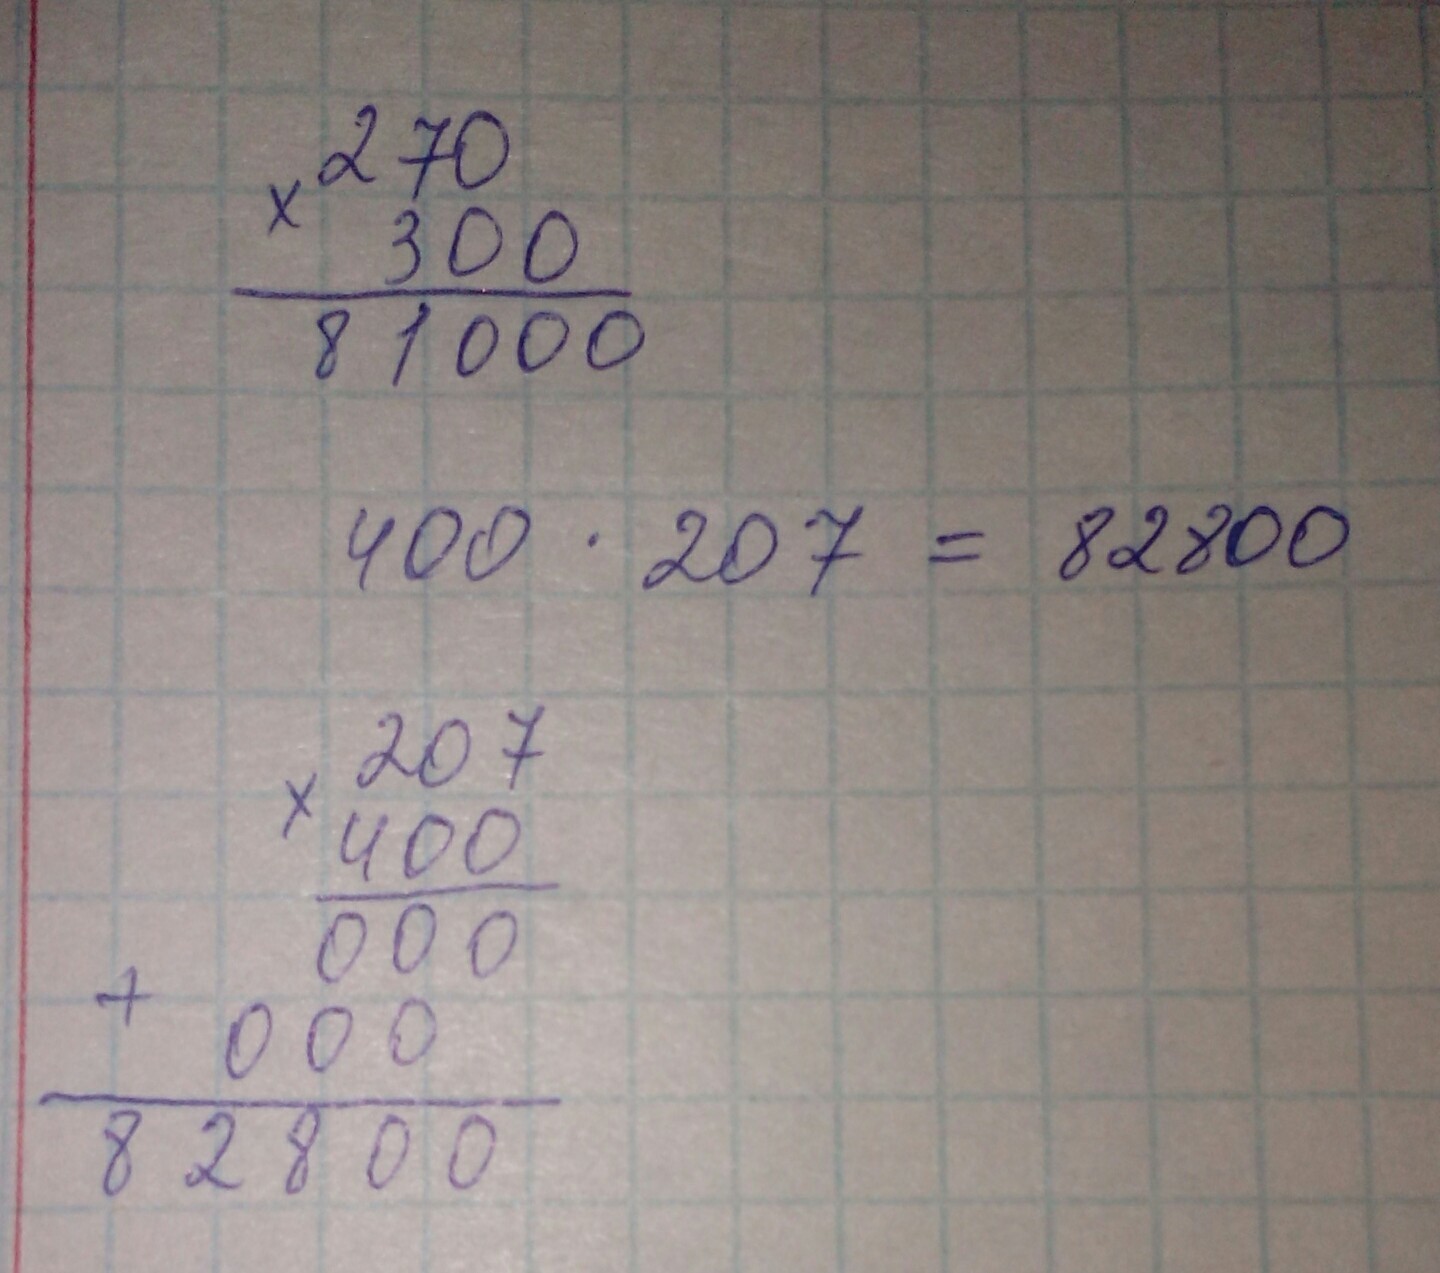 270
× 300
81000
400 · 207 = 82800
207
× 400
000
+ 000
82800